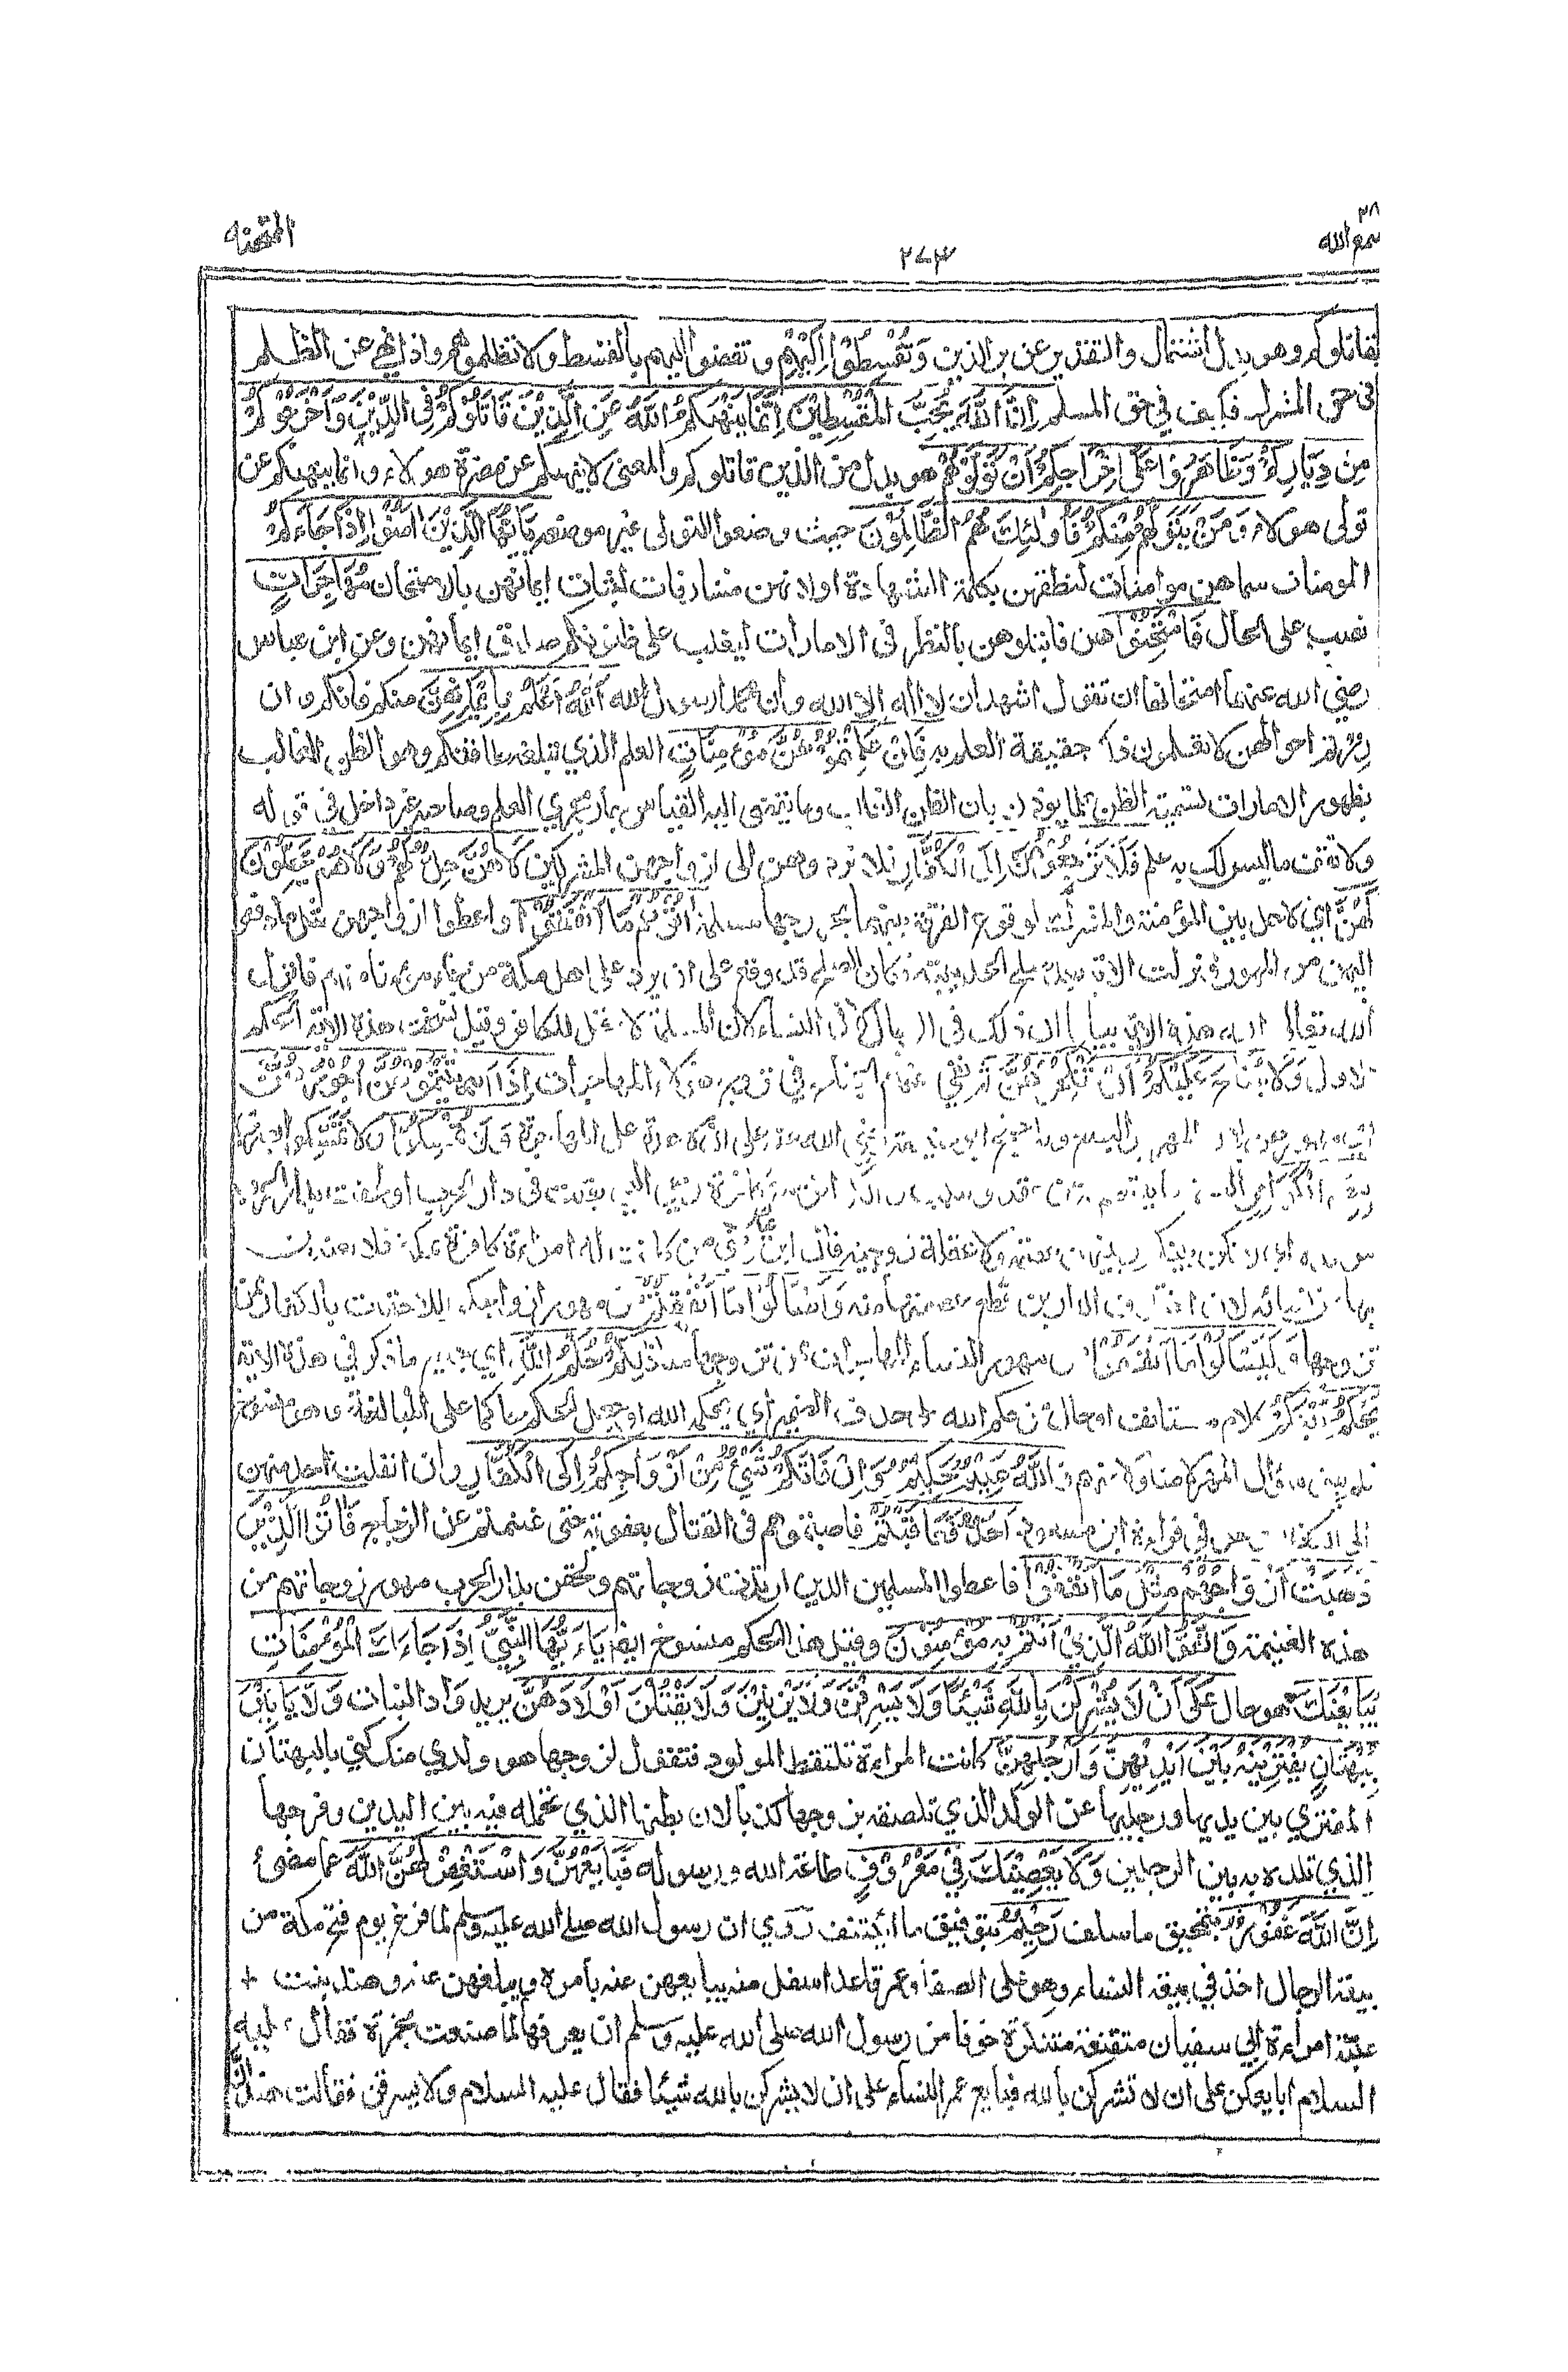 ٢٨
سمع الله
٢٧٣
الممتحنه
يقاتلوكم وهو بدل اشتمال والتقدير عن بر الذين وَتُقْسِطُوْا اِلَيْهِمْ وتقضوا اليهم بالقسط ولا تظلموهم واذا نهي عن الظلم
فى حق المشرك فكيف في حق المسلم اِنَّ اللّٰهَ يُحِبُّ الْمُقْسِطِيْنَ اِنَّمَا يَنْهٰىكُمُ اللّٰهُ عَنِ الَّذِيْنَ قَاتَلُوْكُمْ فِى الدِّيْنِ وَاَخْرَجُوْكُمْ
مِنْ دِيَارِكُمْ وَظَاهَرُوْا عَلٰى اِخْرَاجِكُمْ اَنْ تَوَلَّوْهُمْ هو بدل من الذين قاتلوكم والمعنى لا ينهىكم عن مبرة هولاء وانما ينهىكم عن
تولى هولاء وَمَنْ يَّتَوَلَّهُمْ مِنْكُمْ فَاُولٰئِكَ هُمُ الظَّالِمُوْنَ حيث وضعوا التولى غير موضعه يَاَيُّهَا الَّذِيْنَ اٰمَنُوْا اِذَا جَاءَكُمُ
المومنات سماهن مومنات لنطقهن بكلمة الشهادة اولانهن مشارفات لثبات ايمانهن بالامتحان مُهَاجِرَاتٍ
نصب على الحال فَامْتَحِنُوْهُنَّ فابتلوهن بالنظر فى الامارات ليغلب على ظنونكم صدق ايمانهن وعن ابن عباس
رضي الله عنهما امتحانها ان تقول اشهد ان لا اله الا الله وان محمدا رسول الله اَللّٰهُ اَعْلَمُ بِاِيْمَانِهِنَّ منكم فانكم وان
رزتم احوالهن لا تعلمون ذلك حقيقة العلم به فَاِنْ عَلِمْتُمُوْهُنَّ مُؤْمِنَاتٍ العلم الذي تبلغه طاقتكم وهو الظن الغالب
بظهور الامارات وتسمية الظن علما يوذن بان الظن الغالب وما يفضى اليه القياس جار مجرى العلم وصاحبه غير داخل فى قوله
ولا تقف ما ليس لك به علم فَلَا تَرْجِعُوْهُنَّ اِلَى الْكُفَّارِ فلا تردوهن الى ازواجهن المشركين لَا هُنَّ حِلٌّ لَّهُمْ وَلَا هُمْ يَحِلُّوْنَ
لَهُنَّ اى لا حل بين المؤمنة والمشرك لوقوع الفرقة بينهما بخروجها مسلمة وَاٰتُوْهُمْ مَا اَنْفَقُوْا واعطوا ازواجهن مثل ما دفعوا
اليهن من المهور نزلت الاية بعد صلح الحديبية وكان الصلح قد وقع على ان يرد على اهل مكة من جاء مؤمنا منهم فانزل
الله تعالى هذه الاية بيانا ان ذلك فى الرجال لا فى النساء لان المسلمة لا تحل للكافر وقيل نسخت هذه الاية الحكم
الاول وَلَا جُنَاحَ عَلَيْكُمْ اَنْ تَنْكِحُوْهُنَّ فى تزوج هولاء المهاجرات اِذَا اٰتَيْتُمُوْهُنَّ اُجُوْرَهُنَّ
على المهاجرة وَلَا تُمْسِكُوْا
فى دار الحرب او لحقت بدار الحرب
ولا علقة زوجية قال ابن عباس رضي من كانت له امراة كافرة بمكة فلا يعتدن
بها من نسائه لان اختلاف الدارين قطع عصمتها منه وَاسْئَلُوْا مَا اَنْفَقْتُمْ من مهور ازواجكم اللاحقات بالكفار ممن
تزوجها وَلْيَسْئَلُوْا مَا اَنْفَقُوْا من مهور النساء المهاجرات ممن تزوجها منا ذٰلِكُمْ حُكْمُ اللّٰهِ اى جميع ما ذكر في هذه الاية
يَحْكُمُ بَيْنَكُمْ كلام مستانف او حال من حكم الله على حذف الضمير اي يحكمه الله او جعل الحكم حاكما على المبالغة وهو منسوخ
فلم يبق سؤال المهر لا منا ولا منهم وَاللّٰهُ عَلِيْمٌ حَكِيْمٌ وَاِنْ فَاتَكُمْ شَيْءٌ مِّنْ اَزْوَاجِكُمْ اِلَى الْكُفَّارِ وان انفلت احد منهن
الى الكفار وهو فى قراءة ابن مسعود احد فَعَاقَبْتُمْ فاصبتموهم فى القتال بعقوبة حتى غنمتم عن الزجاج فَاٰتُوا الَّذِيْنَ
ذَهَبَتْ اَزْوَاجُهُمْ مِثْلَ مَا اَنْفَقُوْا فاعطوا المسلمين الذين ارتدت زوجاتهم ولحقن بدار الحرب مهور زوجاتهم من
هذه الغنيمة وَاتَّقُوا اللّٰهَ الَّذِيْ اَنْتُمْ بِهٖ مُؤْمِنُوْنَ وقيل هذا الحكم منسوخ ايضا يَاَيُّهَا النَّبِيُّ اِذَا جَاءَكَ الْمُؤْمِنَاتُ
يُبَايِعْنَكَ هو حال عَلٰى اَنْ لَّا يُشْرِكْنَ بِاللّٰهِ شَيْئًا وَلَا يَسْرِقْنَ وَلَا يَزْنِيْنَ وَلَا يَقْتُلْنَ اَوْلَادَهُنَّ يريد وأد البنات وَلَا يَاْتِيْنَ
بِبُهْتَانٍ يَفْتَرِيْنَهٗ بَيْنَ اَيْدِيْهِنَّ وَاَرْجُلِهِنَّ كانت المراءة تلتقط المولود فتقول لزوجها هو ولدي منك كني بالبهتان
المفترى بين يديها ورجليها عن الولد الذي تلصقه بزوجها كذبا لان بطنها الذي تحمله فيه بين اليدين وفرجها
الذي تلده به بين الرجلين وَلَا يَعْصِيْنَكَ فِيْ مَعْرُوْفٍ طاعة الله ورسوله فَبَايِعْهُنَّ وَاسْتَغْفِرْ لَهُنَّ اللّٰهَ عما مضىٰ
اِنَّ اللّٰهَ غَفُوْرٌ بتمحيق ما سلف رَحِيْمٌ بتوفيق ما ائتنف روي ان رسول الله صلى الله عليه وسلم لما فرغ يوم فتح مكة من
بيعة الرجال اخذ في بيعة النساء وهو على الصفا وعمر قاعد اسفل منه يبايعهن عنه بامره ويبلغهن عنه وهند بنت
عتبة امراءة ابي سفيان متقنعة متنكرة خوفا من رسول الله صلى الله عليه وسلم ان يعرفها لما صنعت بحمزة فقال عليه
السلام ابايعكن على ان لا تشركن بالله فبايع عمر النساء على ان لا يشركن بالله شيئا فقال عليه السلام ولا يسرقن فقالت هند ان